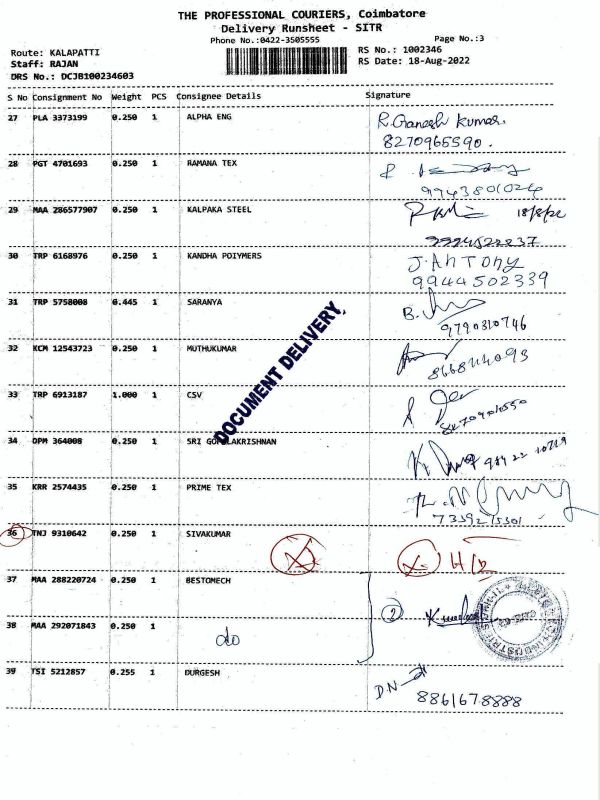 THE PROFESSIONAL COURIERS, Coimbatore
Delivery Runsheet - SITR
Phone No.:0422-3505555
Page No.:3
Route: KALAPATTI
RS No.: 1002346
Staff: RAJAN
RS Date: 18-Aug-2022
DRS No.: DCJB100234603
S No Consignment No Weight PCS Consignee Details Signature
27 PLA 3373199 0.250 1 ALPHA ENG R.Ganesh Kumar.
8270965590.
28 PGT 4701693 0.250 1 RAMANA TEX
9943801024
29 MAA 286577907 0.250 1 KALPAKA STEEL 18/8/22
30 TRP 6168976 0.250 1 KANDHA POIYMERS J.ANTONY
9944502339
31 TRP 5758008 0.445 1 SARANYA B.
9790310746
32 KCM 12543723 0.250 1 MUTHUKUMAR
33 TRP 6913187 1.000 1 CSV
34 OPM 364008 0.250 1 SRI GOPALAKRISHNAN
35 KRR 2574435 0.250 1 PRIME TEX
7339215301
36 TNJ 9310642 0.250 1 SIVAKUMAR
37 MAA 288220724 0.250 1 BESTOMECH
2
38 MAA 292071843 0.250 1 do
39 TSI 5212857 0.255 1 DURGESH D.N
8861678888
DOCUMENT DELIVERY